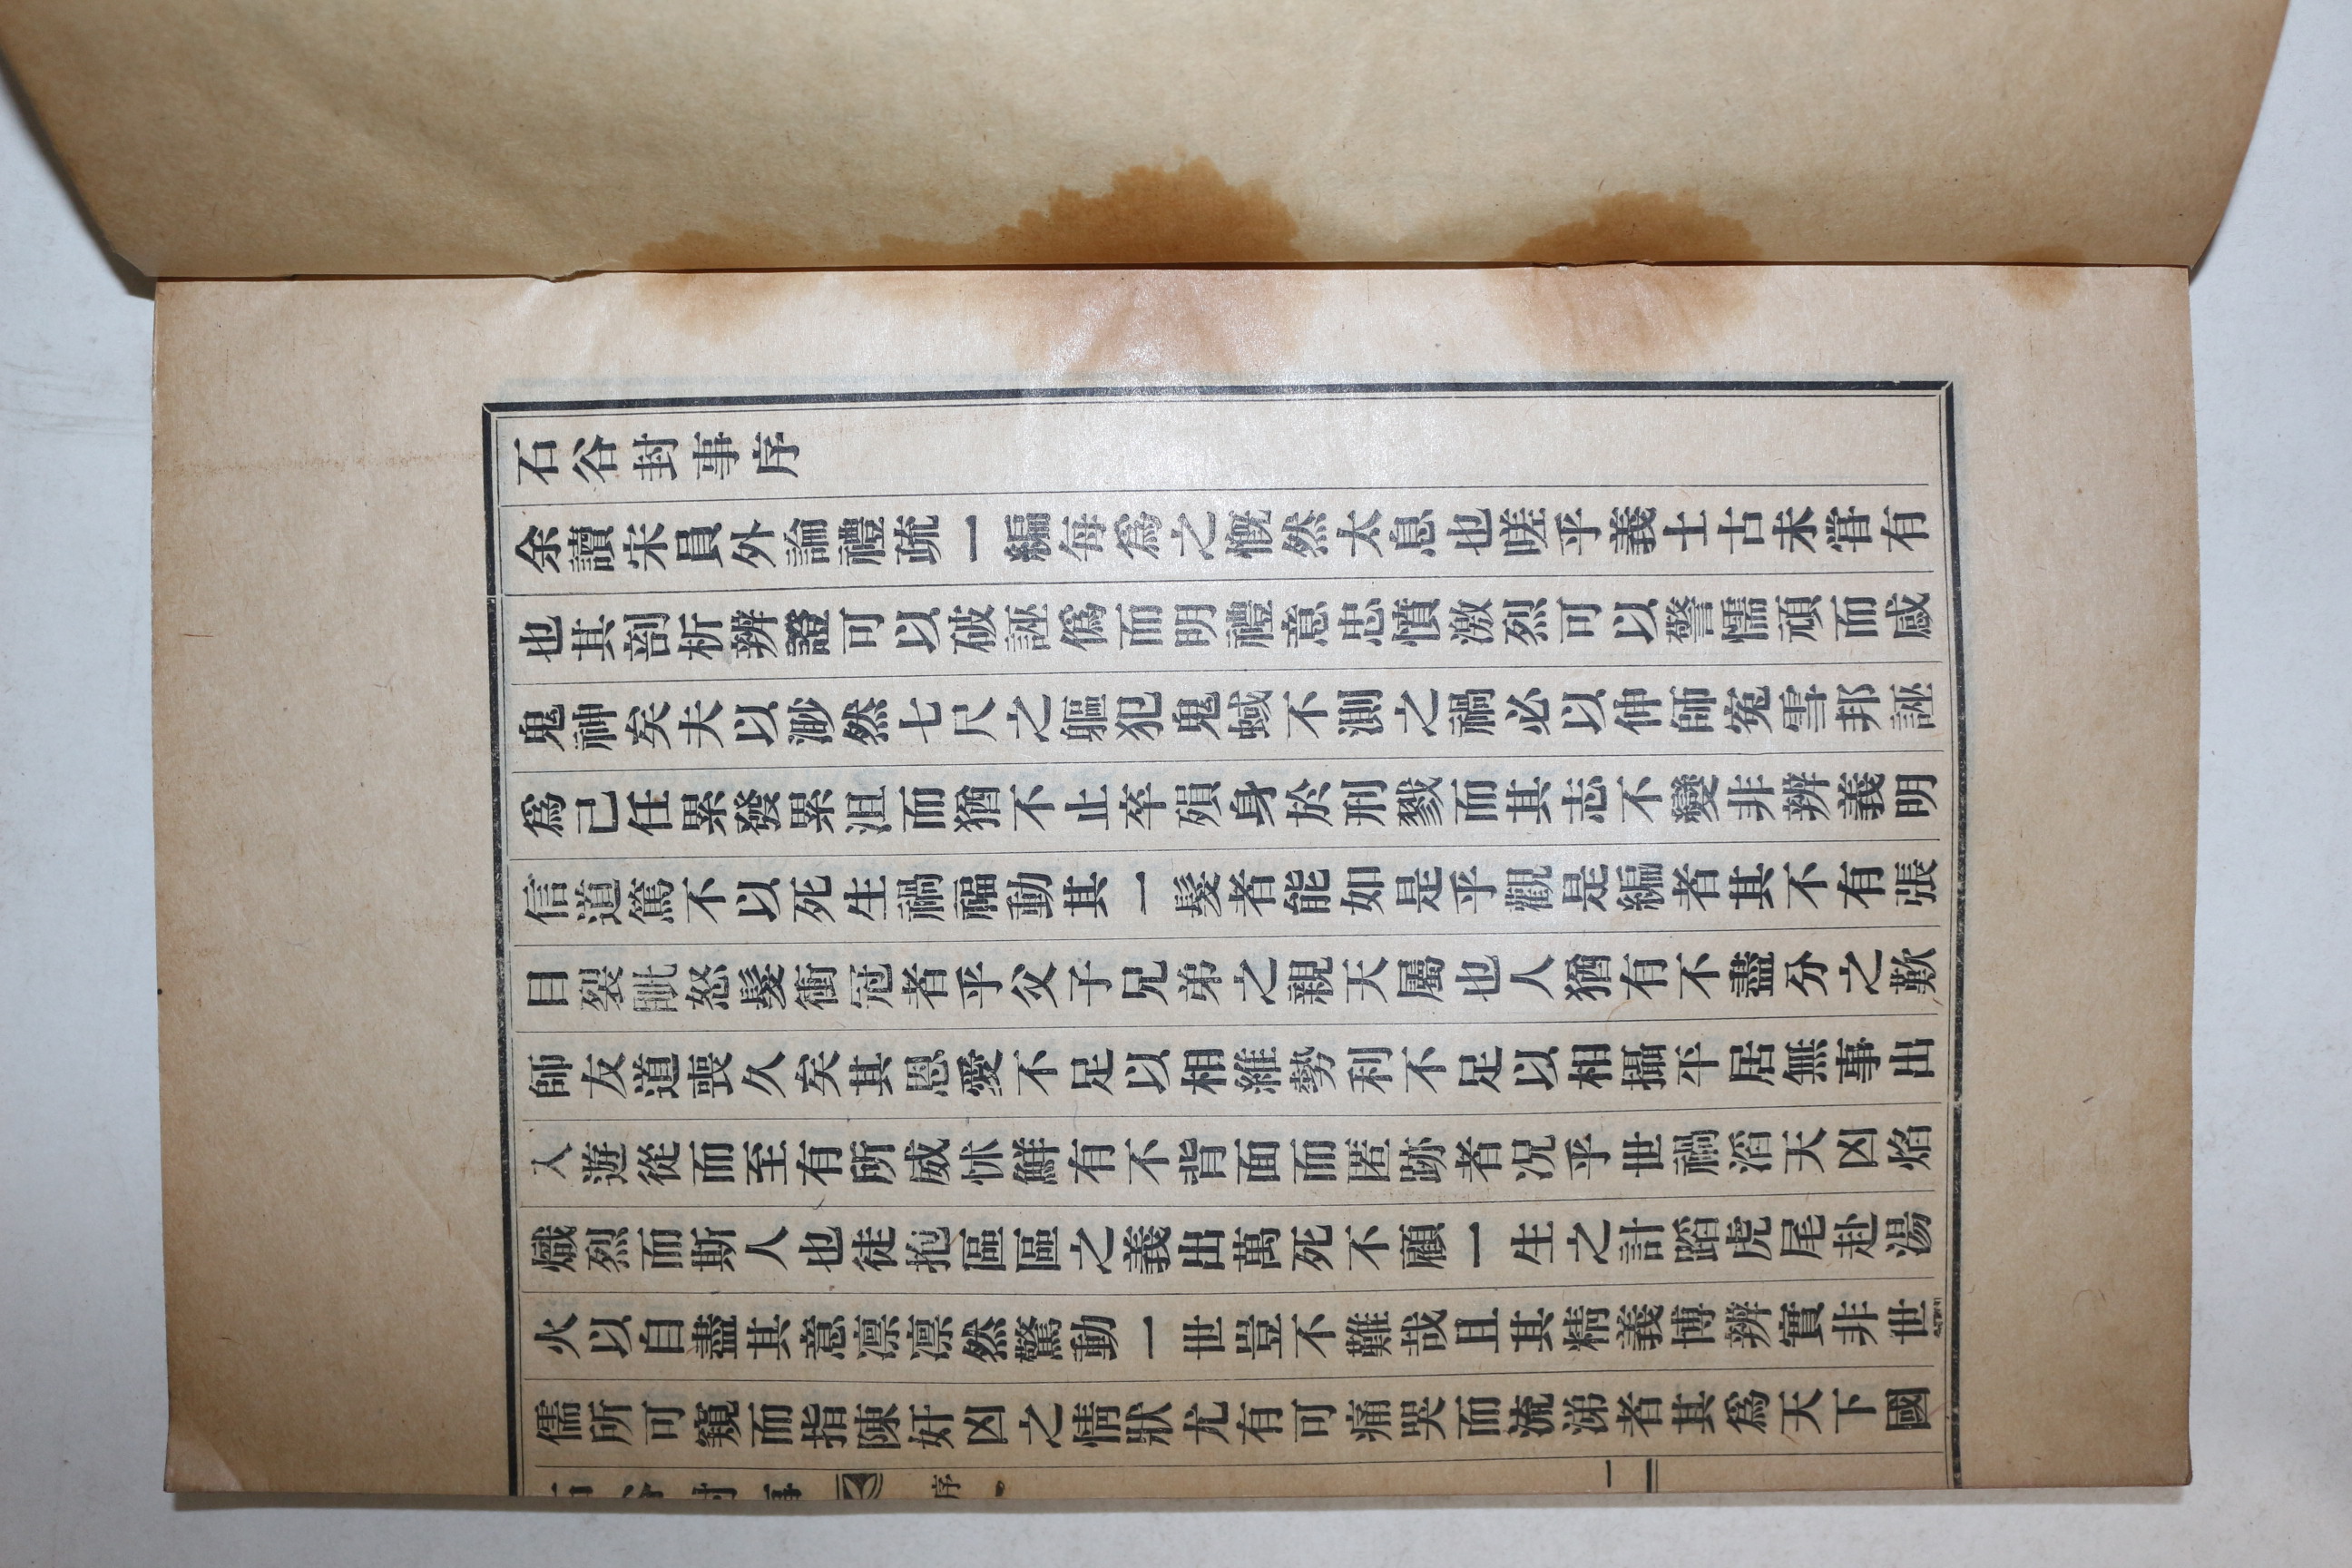 石谷封事序
余讀宋員外論禮疏一編每爲之慨然太息也嗟乎義士古未甞有
也其剖析辨證可以破誣僞而明禮意忠憤激烈可以警懦頑而感
鬼神矣夫以渺然七尺之軀犯鬼蜮不測之禍必以伸師寃雪邦誣
爲己任累發累沮而猶不止卒殞身於刑戮而其志不變非辨義明
信道篤不以死生禍福動其一髮者能如是乎觀是編者其不有張
目裂眦怒髮衝冠者乎父子兄弟之親天屬也人猶有不盡分之歎
師友道喪久矣其恩愛不足以相維勢利不足以相攝平居無事出
入遊從而至有所威怵鮮有不背面而匿跡者况乎世禍滔天凶焰
熾烈而斯人也徒抱區區之義出萬死不顧一生之計蹈虎尾赴湯
火以自盡其意凛凛然驚動一世豈不難哉且其精義博辨實非世
儒所可窺而指陳奸凶之情狀尤有可痛哭而流涕者其爲天下國
石谷封事 序 一